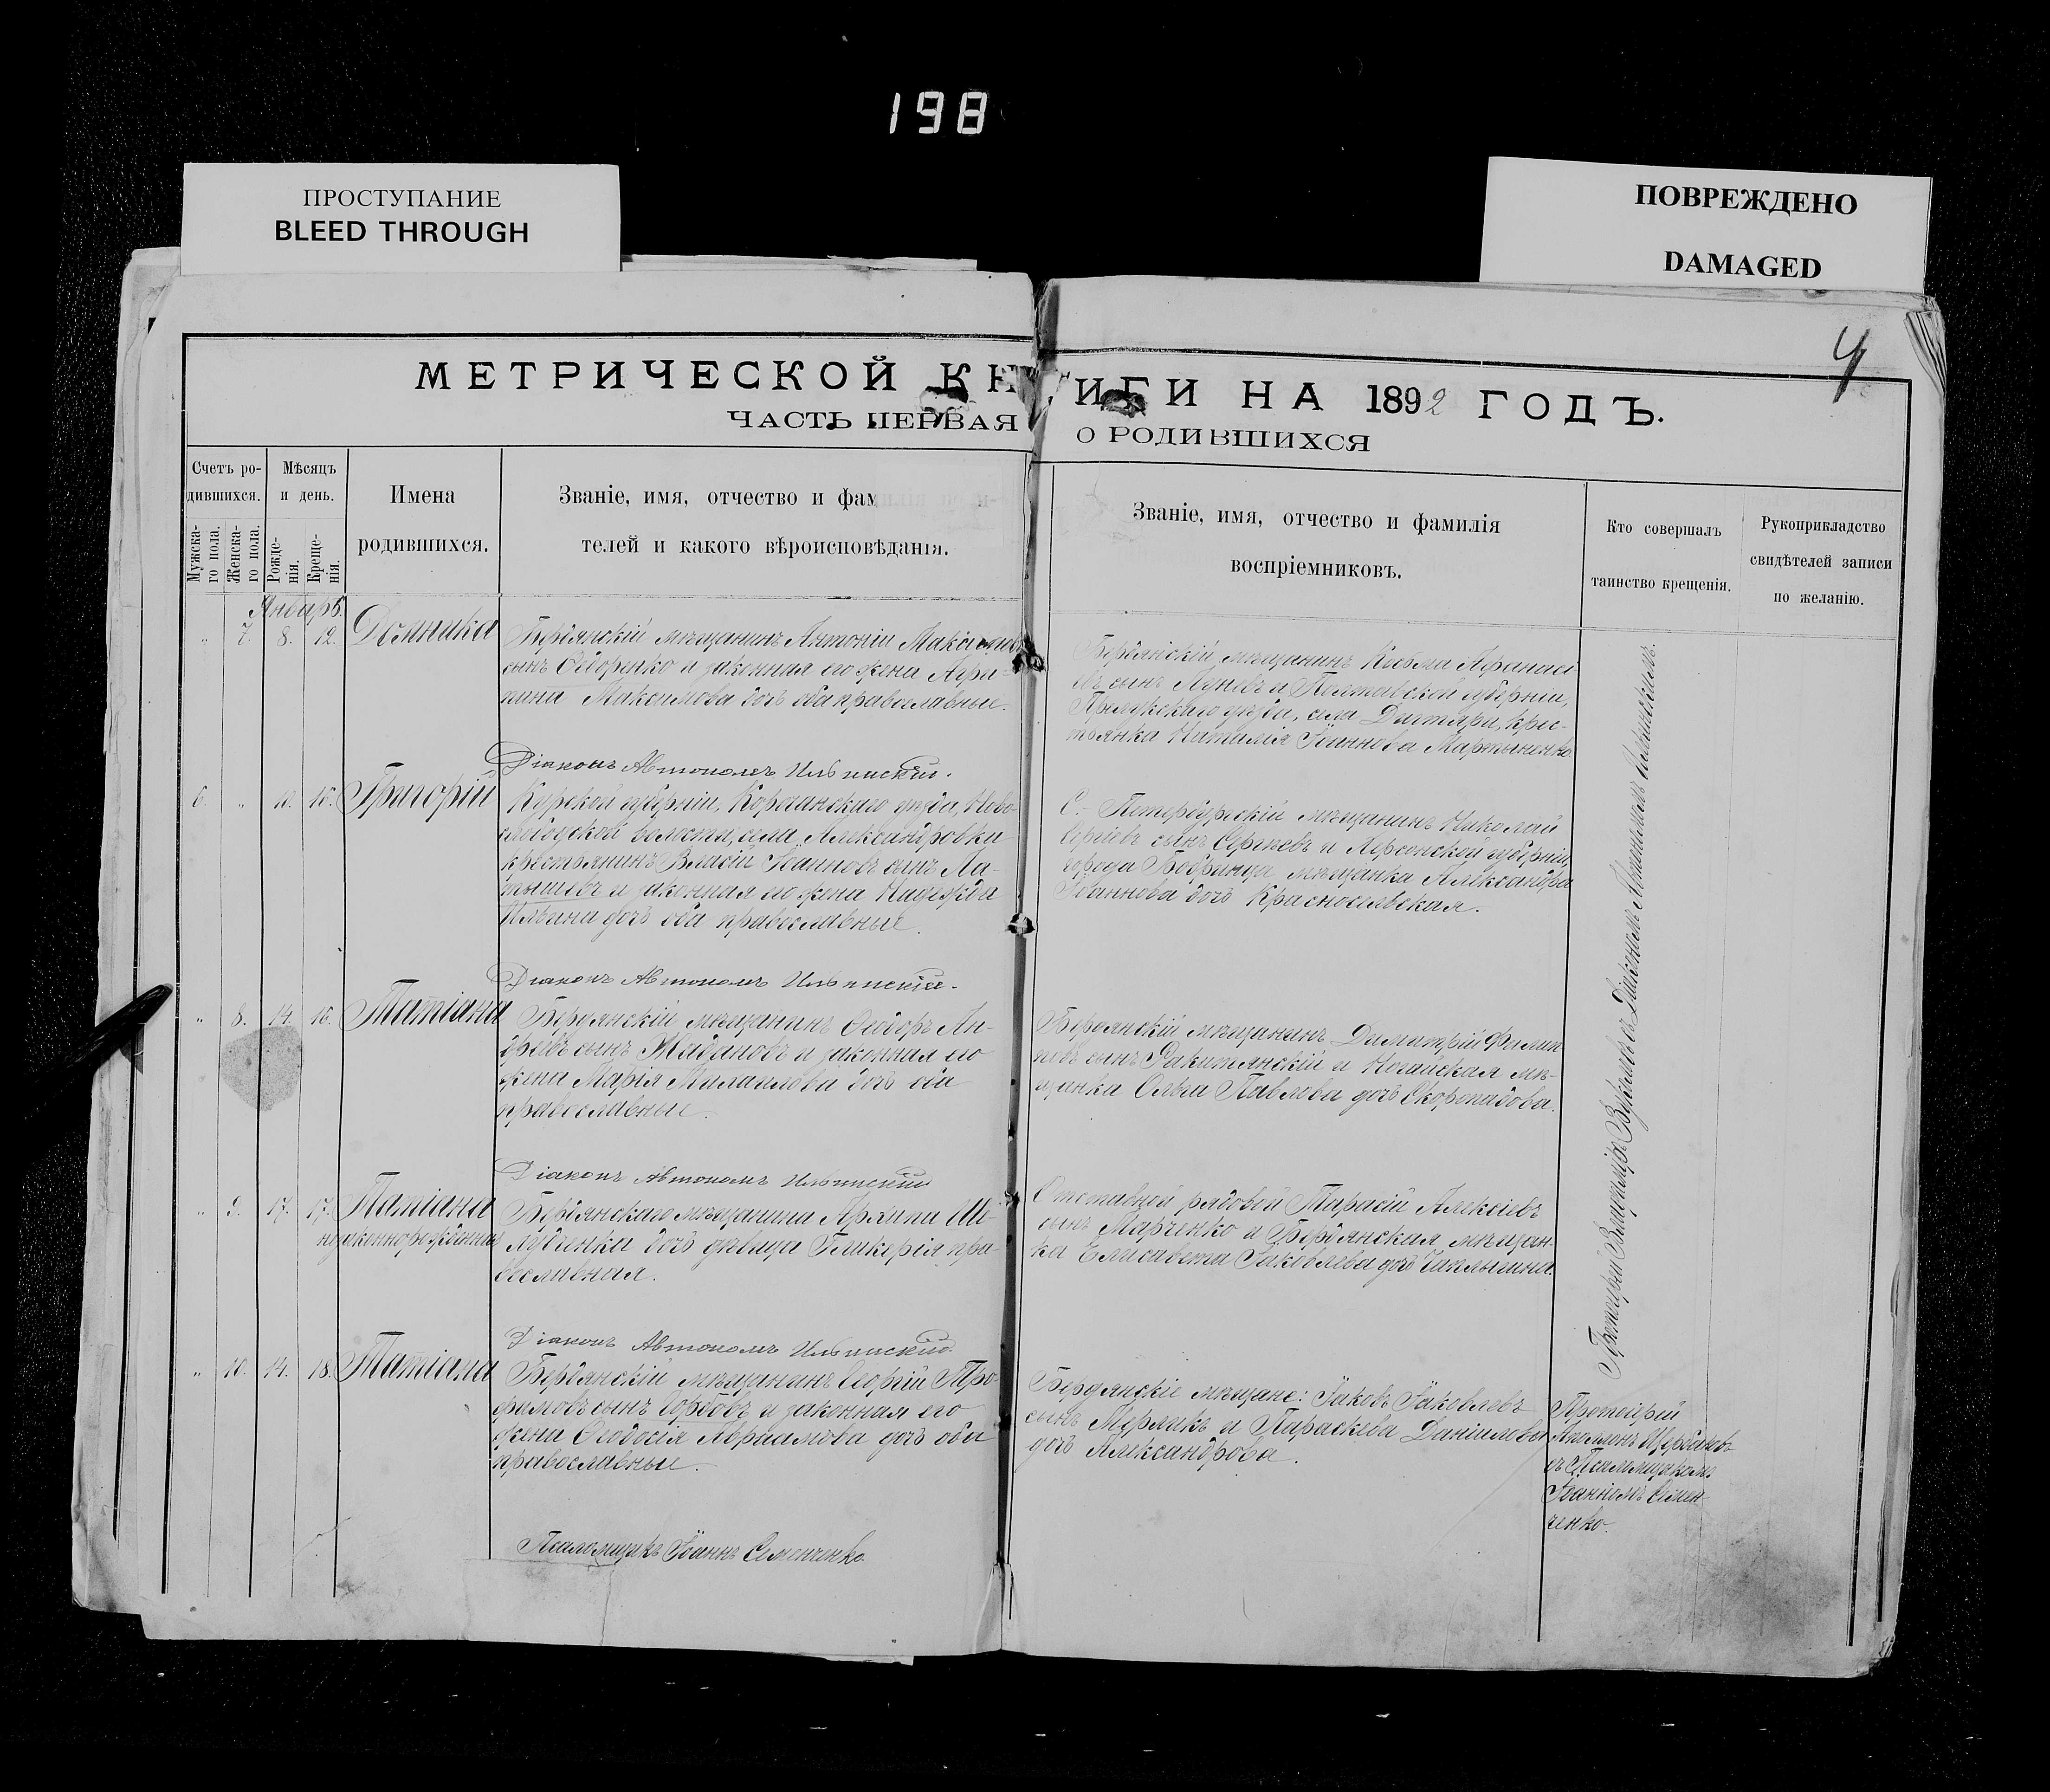 198
ПРОСТУПАНИЕ
BLEED THROUGH
ПОВРЕЖДЕНО
DAMAGED
4
МЕТРИЧЕСКОЙ КН ИГИ НА 1892 ГОДЪ.
ЧАСТЬ ПЕРВАЯ О РОДИВШИХСЯ
Счетъ ро-
дившихся.
Мужска-
го пола.
Женска-
го пола.
Мѣсяцъ
и день.
Рожде-
нія.
Креще-
нія.
Имена
родившихся.
Званіе, имя, отчество и фамилія роди-
телей и какого вѣроисповѣданія.
Званіе, имя, отчество и фамилія
воспріемниковъ.
Кто совершалъ
таинство крещенія.
Рукоприкладство
свидѣтелей записи
по желанію.
Январь.
" 7. 8. 12. Домника
Бердянскій мѣщанинъ Антоній Максимовъ
сынъ Ѳедоренко и законная его жена Агри-
пина Максимова дочь оба православные.
Бердянскій мѣщанинъ Косьма Афанасі
евъ сынъ и Полтавской губерніи,
Прилукскаго уѣзда, села крес-
тьянка Наталія Іоаннова Мартыненко
Діаконъ Автономъ Ильинскій.
6. " 10. Григорій
Курской губерніи, Корочанскаго уѣзда, Ново-
слободской волости, села Александровки
крестьянинъ Власій Іоанновъ сынъ Ла-
тышевъ и законная его жена Надежда
Ильина дочь оба православные.
С.-Петербургскій мѣщанинъ Николай
Сергіевъ сынъ Сергѣевъ и Херсонской губерніи,
города Бобринца мѣщанка Александра
Іоаннова дочь Красносельская.
Діаконъ Автономъ Ильинскій.
" 8. 14. 16. Татіана
Бердянскій мѣщанинъ Ѳеодоръ Ан-
дреевъ сынъ Жадановъ и законная его
жена Марія Михаилова дочь оба
православные.
Бердянскій мѣщанинъ Димитрій Филип
повъ сынъ Ракитянскій и Ногайская мѣ-
щанка Ольга Павлова дочь Скоропадова.
Діаконъ Автономъ Ильинскій
" 9. 17. 17. Татіана
незаконнорожденная
Бердянскаго мѣщанина Архипа Ше-
дочь дѣвица Гликерія, пра-
вославная.
Отставной рядовой Тарасій Алексіевъ
сынъ Марченко и Бердянская мѣщан-
ка Елисавета Іаковлева дочь Чаплыгина.
Діаконъ Автономъ Ильинскій.
" 10. 14. 18. Татіана
Бердянскій мѣщанинъ Георгій Тро-
фимовъ сынъ и законная его
жена Ѳеодосія Авраамова дочь оба
православные.
Бердянскіе мѣщане: Іаковъ Іаковлевъ
сынъ Мерликъ и Параскева Даніилова
дочь Александрова.
Псаломщикъ Іоаннъ Семенченко
Протоіерей Владиміръ съ Діакономъ Автономомъ Ильинскимъ.
Протоіерей
съ Псаломщикомъ
Іоанномъ Семен-
ченко.